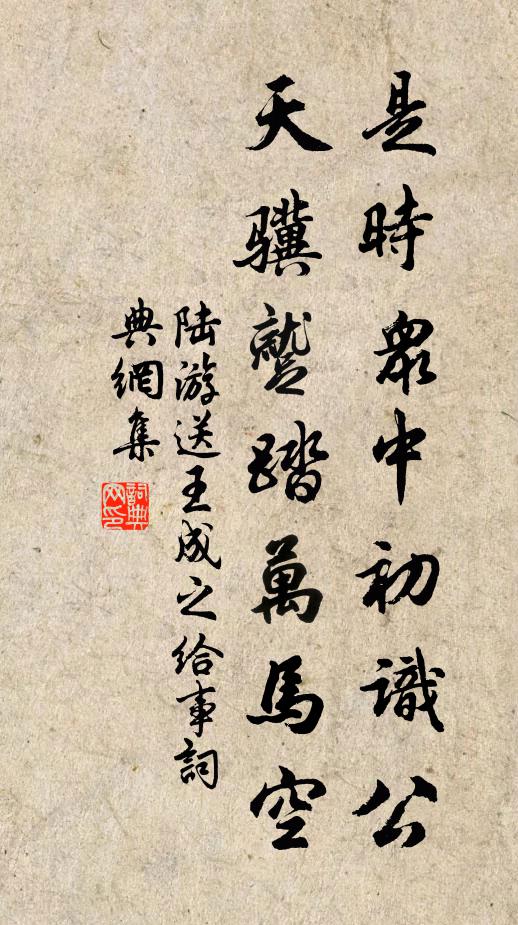 是時眾中初識公
天驥蹵踏萬馬空
陸游送王成之給事詞
典網集
詞典
网印